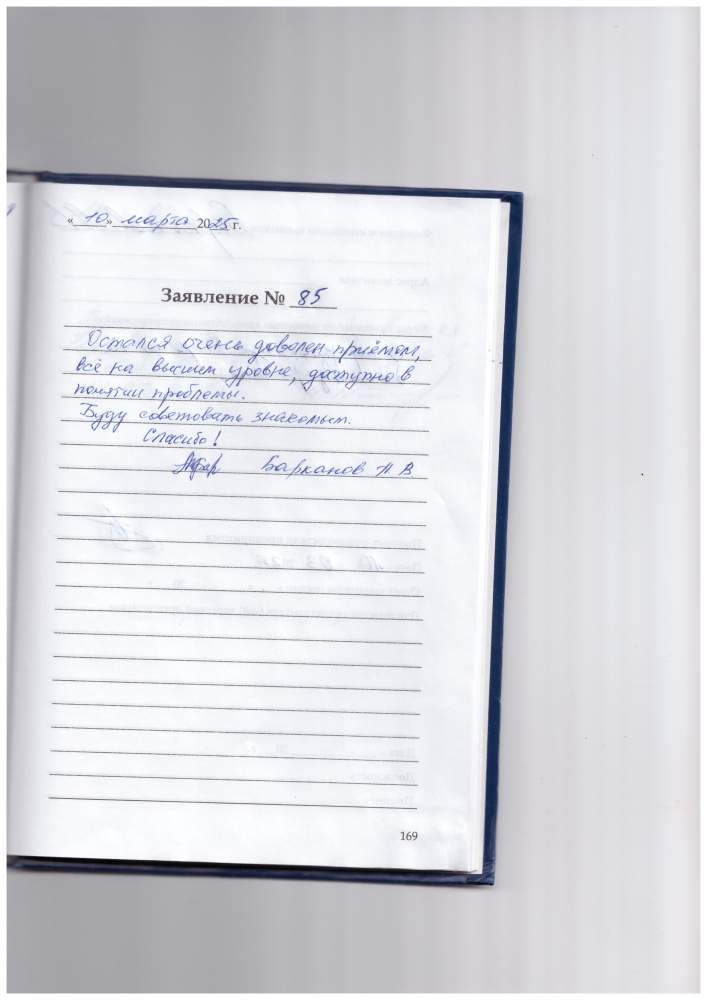 « 10 » марта 2025 г.
Заявление № 85
Остался очень доволен приёмом,
всё на высшем уровне, доступно в
понятии проблемы.
Буду советовать знакомым.
Спасибо!
Барканов Н. В.
169